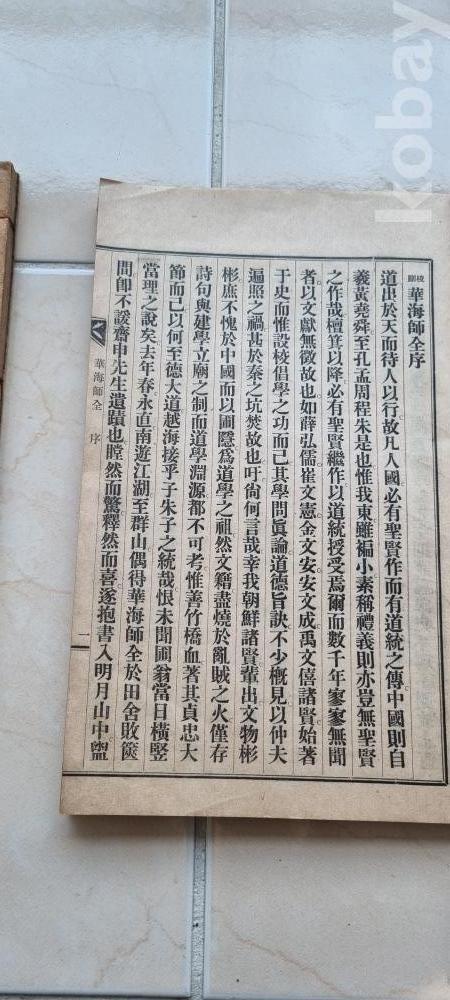 校刪華海師全序
道出於天而待人以行故凡人國必有聖賢作而有道統之傳中國則自
羲黃堯舜至孔孟周程朱是也惟我東雖褊小素稱禮義則亦豈無聖賢
之作哉檀箕以降必有聖賢繼作以道統授受焉爾而數千年寥寥無聞
者以文獻無徵故也如薛弘儒崔文憲金文安安文成禹文僖諸賢始著
于史而惟設校倡學之功而已其學問眞論道德旨訣不少槪見以仲夫
遍照之禍甚於秦之坑焚故也吁尙何言哉幸我朝鮮諸賢輩出文物彬
彬庶不愧於中國而以圃隱爲道學之祖然文籍盡燒於亂賊之火僅存
詩句與建學立廟之制而道學淵源都不可考惟善竹橋血著其貞忠大
節而已以何至德大道越海接乎子朱子之統哉恨未聞圃翁當日橫竪
當理之說矣去年春永直南遊江湖至群山偶得華海師全於田舍敗篋
間卽不諼齋申先生遺蹟也瞠然而驚釋然而喜遂抱書入明月山中盥
華海師全 序
一
kobay